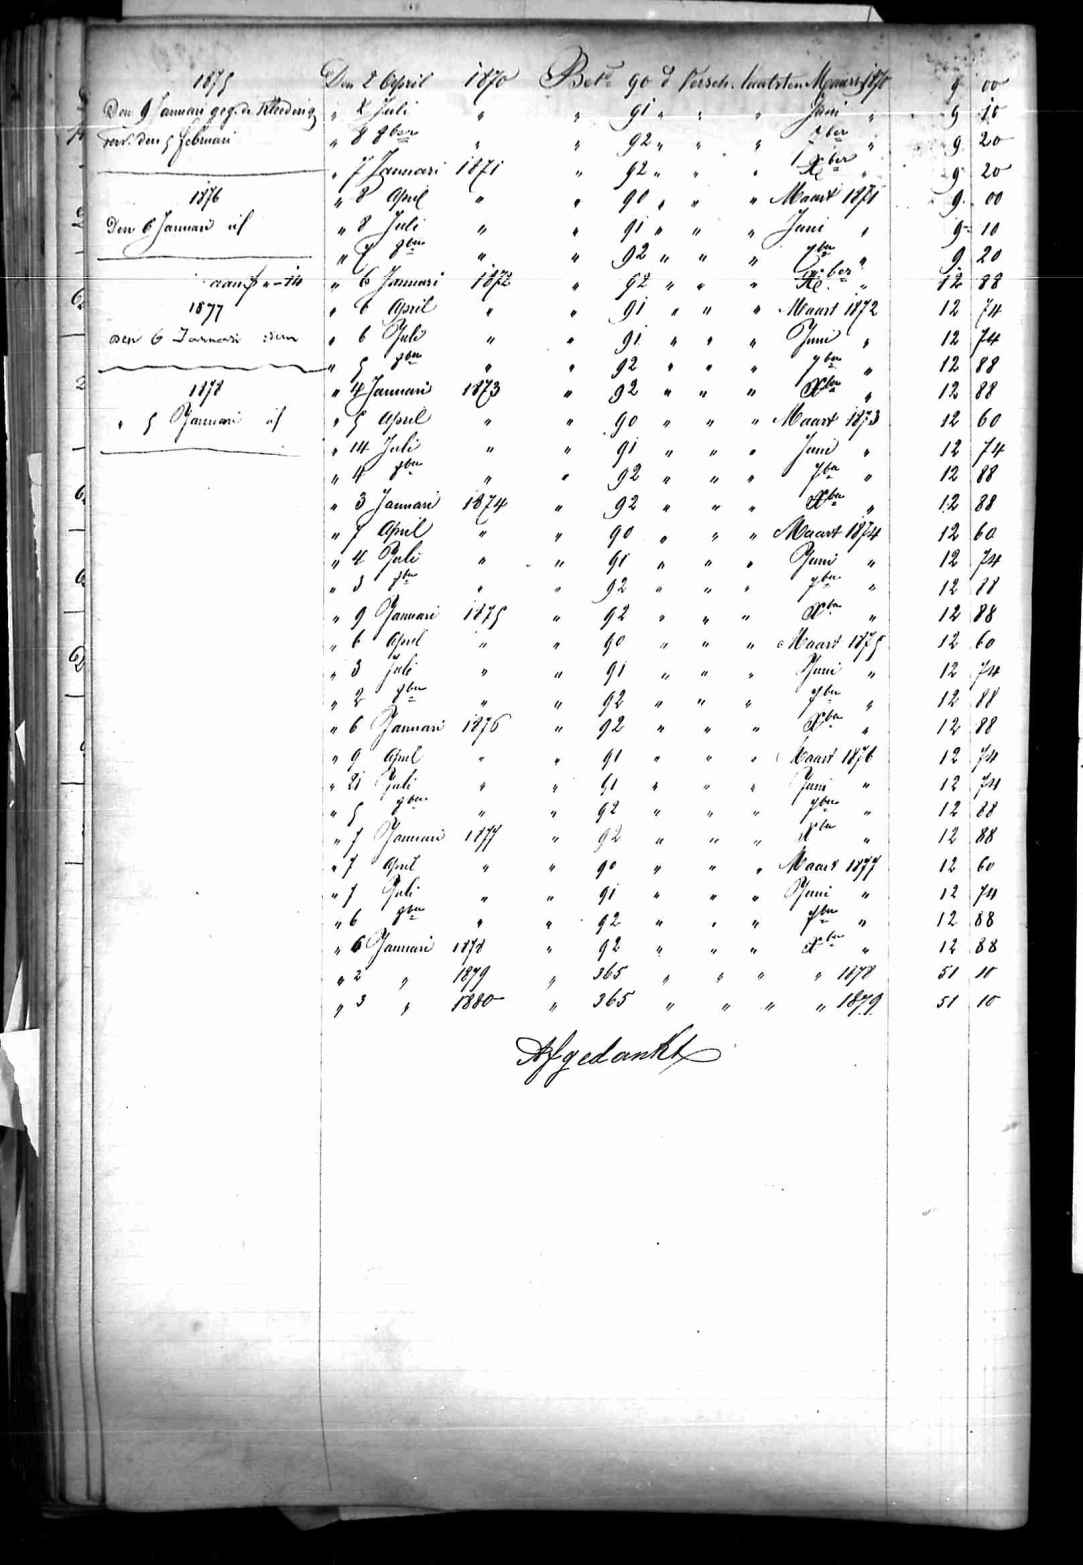 1875
Den 9 Januari geg. de Kleeding
verv. den 5 februari
1876
Den 6 Januari id
1877
den 6 Januari idem
1878
" 5 Januari id
Den 8 April 1870 Bet. 90 d Versch. laatsten Maart 1870 9 00
" 8 Juli " " 91 " " " Juni " 9 10
" 8 8ber " " 92 " " " 7ber " 9 20
" 7 Januari 1871 " 92 " " " Xber " 9 20
" 8 April " " 90 " " " Maart 1871 9 00
" 8 Juli " " 91 " " " Juni " 9 10
" 7 8ber " " 92 " " " 7ber " 9 20
" 6 Januari 1872 " 92 " " " Xber " 12 88
" 6 April " " 91 " " " Maart 1872 12 74
" 6 Juli " " 91 " " " Juni " 12 74
" 5 8ber " " 92 " " " 7ber " 12 88
" 4 Januari 1873 " 92 " " " Xber " 12 88
" 5 April " " 90 " " " Maart 1873 12 60
" 14 Juli " " 91 " " " Juni " 12 74
" 4 8ber " " 92 " " " 7ber " 12 88
" 3 Januari 1874 " 92 " " " Xber " 12 88
" 7 April " " 90 " " " Maart 1874 12 60
" 4 Juli " " 91 " " " Juni " 12 74
" 3 8ber " " 92 " " " 7ber " 12 88
" 9 Januari 1875 " 92 " " " Xber " 12 88
" 6 April " " 90 " " " Maart 1875 12 60
" 3 Juli " " 91 " " " Juni " 12 74
" 2 8ber " " 92 " " " 7ber " 12 88
" 6 Januari 1876 " 92 " " " Xber " 12 88
" 9 April " " 91 " " " Maart 1876 12 74
" 21 Juli " " 91 " " " Juni " 12 74
" 5 8ber " " 92 " " " 7ber " 12 88
" 7 Januari 1877 " 92 " " " Xber " 12 88
" 7 April " " 90 " " " Maart 1877 12 60
" 7 Juli " " 91 " " " Juni " 12 74
" 6 8ber " " 92 " " " 7ber " 12 88
" 6 Januari 1878 " 92 " " " Xber " 12 88
" 2 " 1879 " 365 " " " " 1878 51 10
" 3 " 1880 " 365 " " " " 1879 51 10
Afgedankt